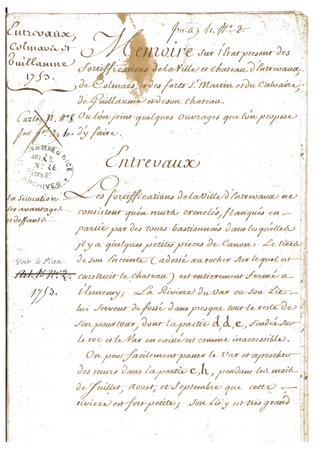 Entrevaux,
Colmars et
Guillaume
1753.
Memoire sur l'Etat present des
fortiffications de la Ville et chateau d'Entrevaux,
de Colmars, et des forts St. Martin et du Calvaire,
de Guillaume et de son chateau.
Ou l'on joint quelques Ouvrages que l'on propose
d'y faire.
NICE
ARCHIVES
Entrevaux
La Situation
ses avantages
et deffauts
Les fortiffications de la Ville d'Entrevaux ne
consistent qu'en murs crenelés, flanqués en
partie par des tours bastionnées dans lesquelles
il y a quelques petites pieces de Canon. Le tiers
de son Enceinte (adossé au rocher sur lequel est
construit le chateau) est entierement fermé a
l'Ennemy; La Riviere du Var ou son Lit
lui servent de fossé dans presque tout le reste de
son pourtour, dont la partie d, d, e, fondée sur
le roc et le Var en caisse est comme inaccessible.
Voir le Plan
1753.
On peut facilement passer le Var et aprocher
des murs dans la partie c, h, pendant les mois
de Juillet, Aoust, et Septembre que cette
riviere est fort petite; son Lit y est très grand